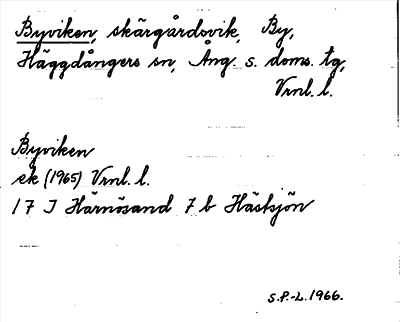 Byviken, skärgårdsvik, By,
Häggdångers sn, Ång. s. doms. tg,
Vrnl. l.
Byviken
ek (1965) Vrnl. l.
17 I Härnösand 7 b Hästsjön
S.P.-L. 1966.